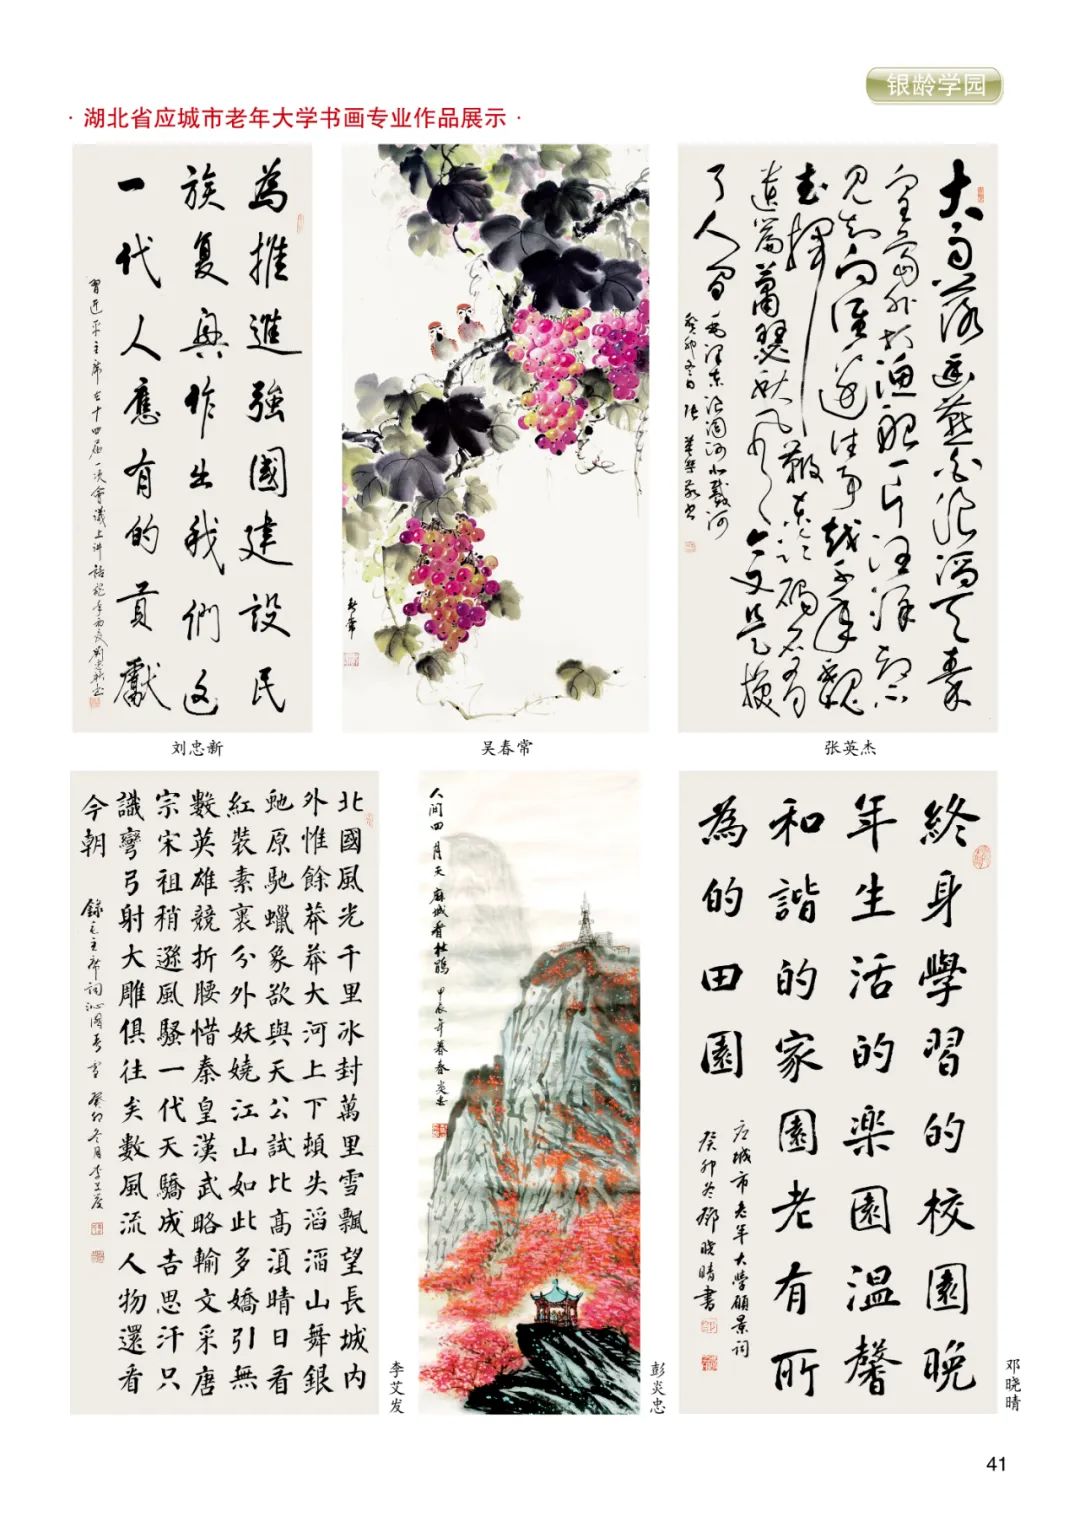 银龄学园
·湖北省应城市老年大学书画专业作品展示·
為推進強國建設民
族复興作出我們这
一代人應有的貢獻
刘忠新
春常
吴春常
大雨落幽燕白浪滔天秦
皇島外打漁船一片汪洋都不
見知向誰邊往事越千年魏
武揮鞭東臨碣石有
遺篇蕭瑟秋風今又是換
了人间
毛澤东浪淘沙北戴河
癸卯冬日張英傑書
张英杰
北國風光千里冰封萬里雪飄望長城內
外惟餘莽莽大河上下頓失滔滔山舞銀
虵原馳蠟象欲與天公試比高湏晴日看
紅裝素裹分外妖嬈江山如此多嬌引無
數英雄競折腰惜秦皇漢武略輸文采唐
宗宋祖稍遜風騷一代天驕成吉思汗只
識彎弓射大雕俱往矣數風流人物還看
今朝
錄毛主席詞沁園春雪 癸卯冬月李艾发
李艾发
人间四月天 麻城看杜鹃
甲辰年暮春炎忠
彭炎忠
終身學習的校園晚
年生活的樂園溫馨
和諧的家園老有所
為的田園
应城市老年大學願景词
癸卯冬鄧晓晴書
邓晓晴
41